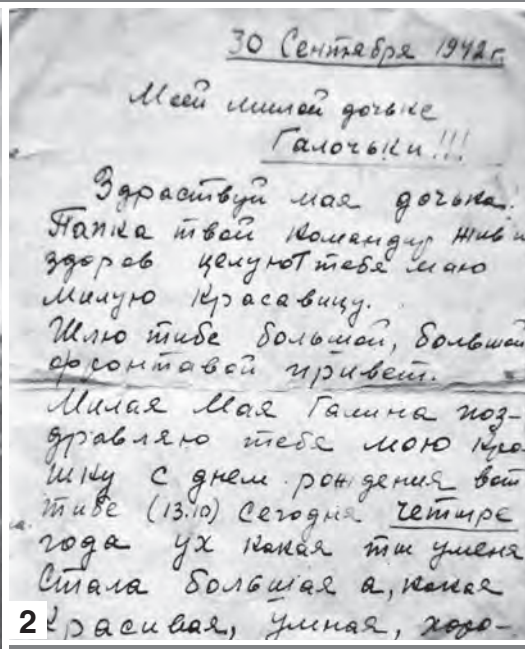 30 Сентября 1942 г.
Моей милой дочьке
Галочьки!!!
Здраствуй мая дочька.
Папка твой командир жив и
здоров целуют тебя маю
милую красавицу.
Шлю тибе большой, большой
фронтавой привет.
Милая Мая Галина поз-
дравляю тебя мою Кро
шку с днем рождения вот
тибе (13.10) Сегодня четыре
года ух какая ты уменя
стала большая а, какая
красивая, умная, хоро-
2